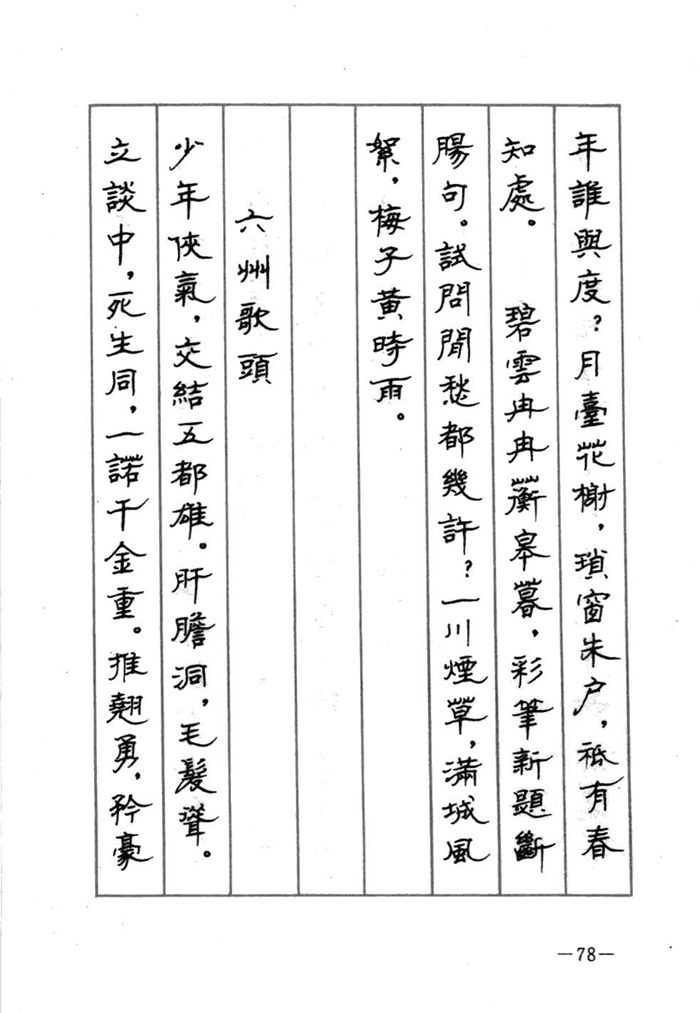 年誰與度？月臺花榭，瑣窗朱户，祗有春
知處。 碧雲冉冉蘅皋暮，彩筆新題斷
腸句。試問閒愁都幾許？一川煙草，滿城風
絮，梅子黄時雨。
六州歌頭
少年俠氣，交結五都雄。肝膽洞，毛髮聳。
立談中，死生同，一諾千金重。推翹勇，矜豪
—78—